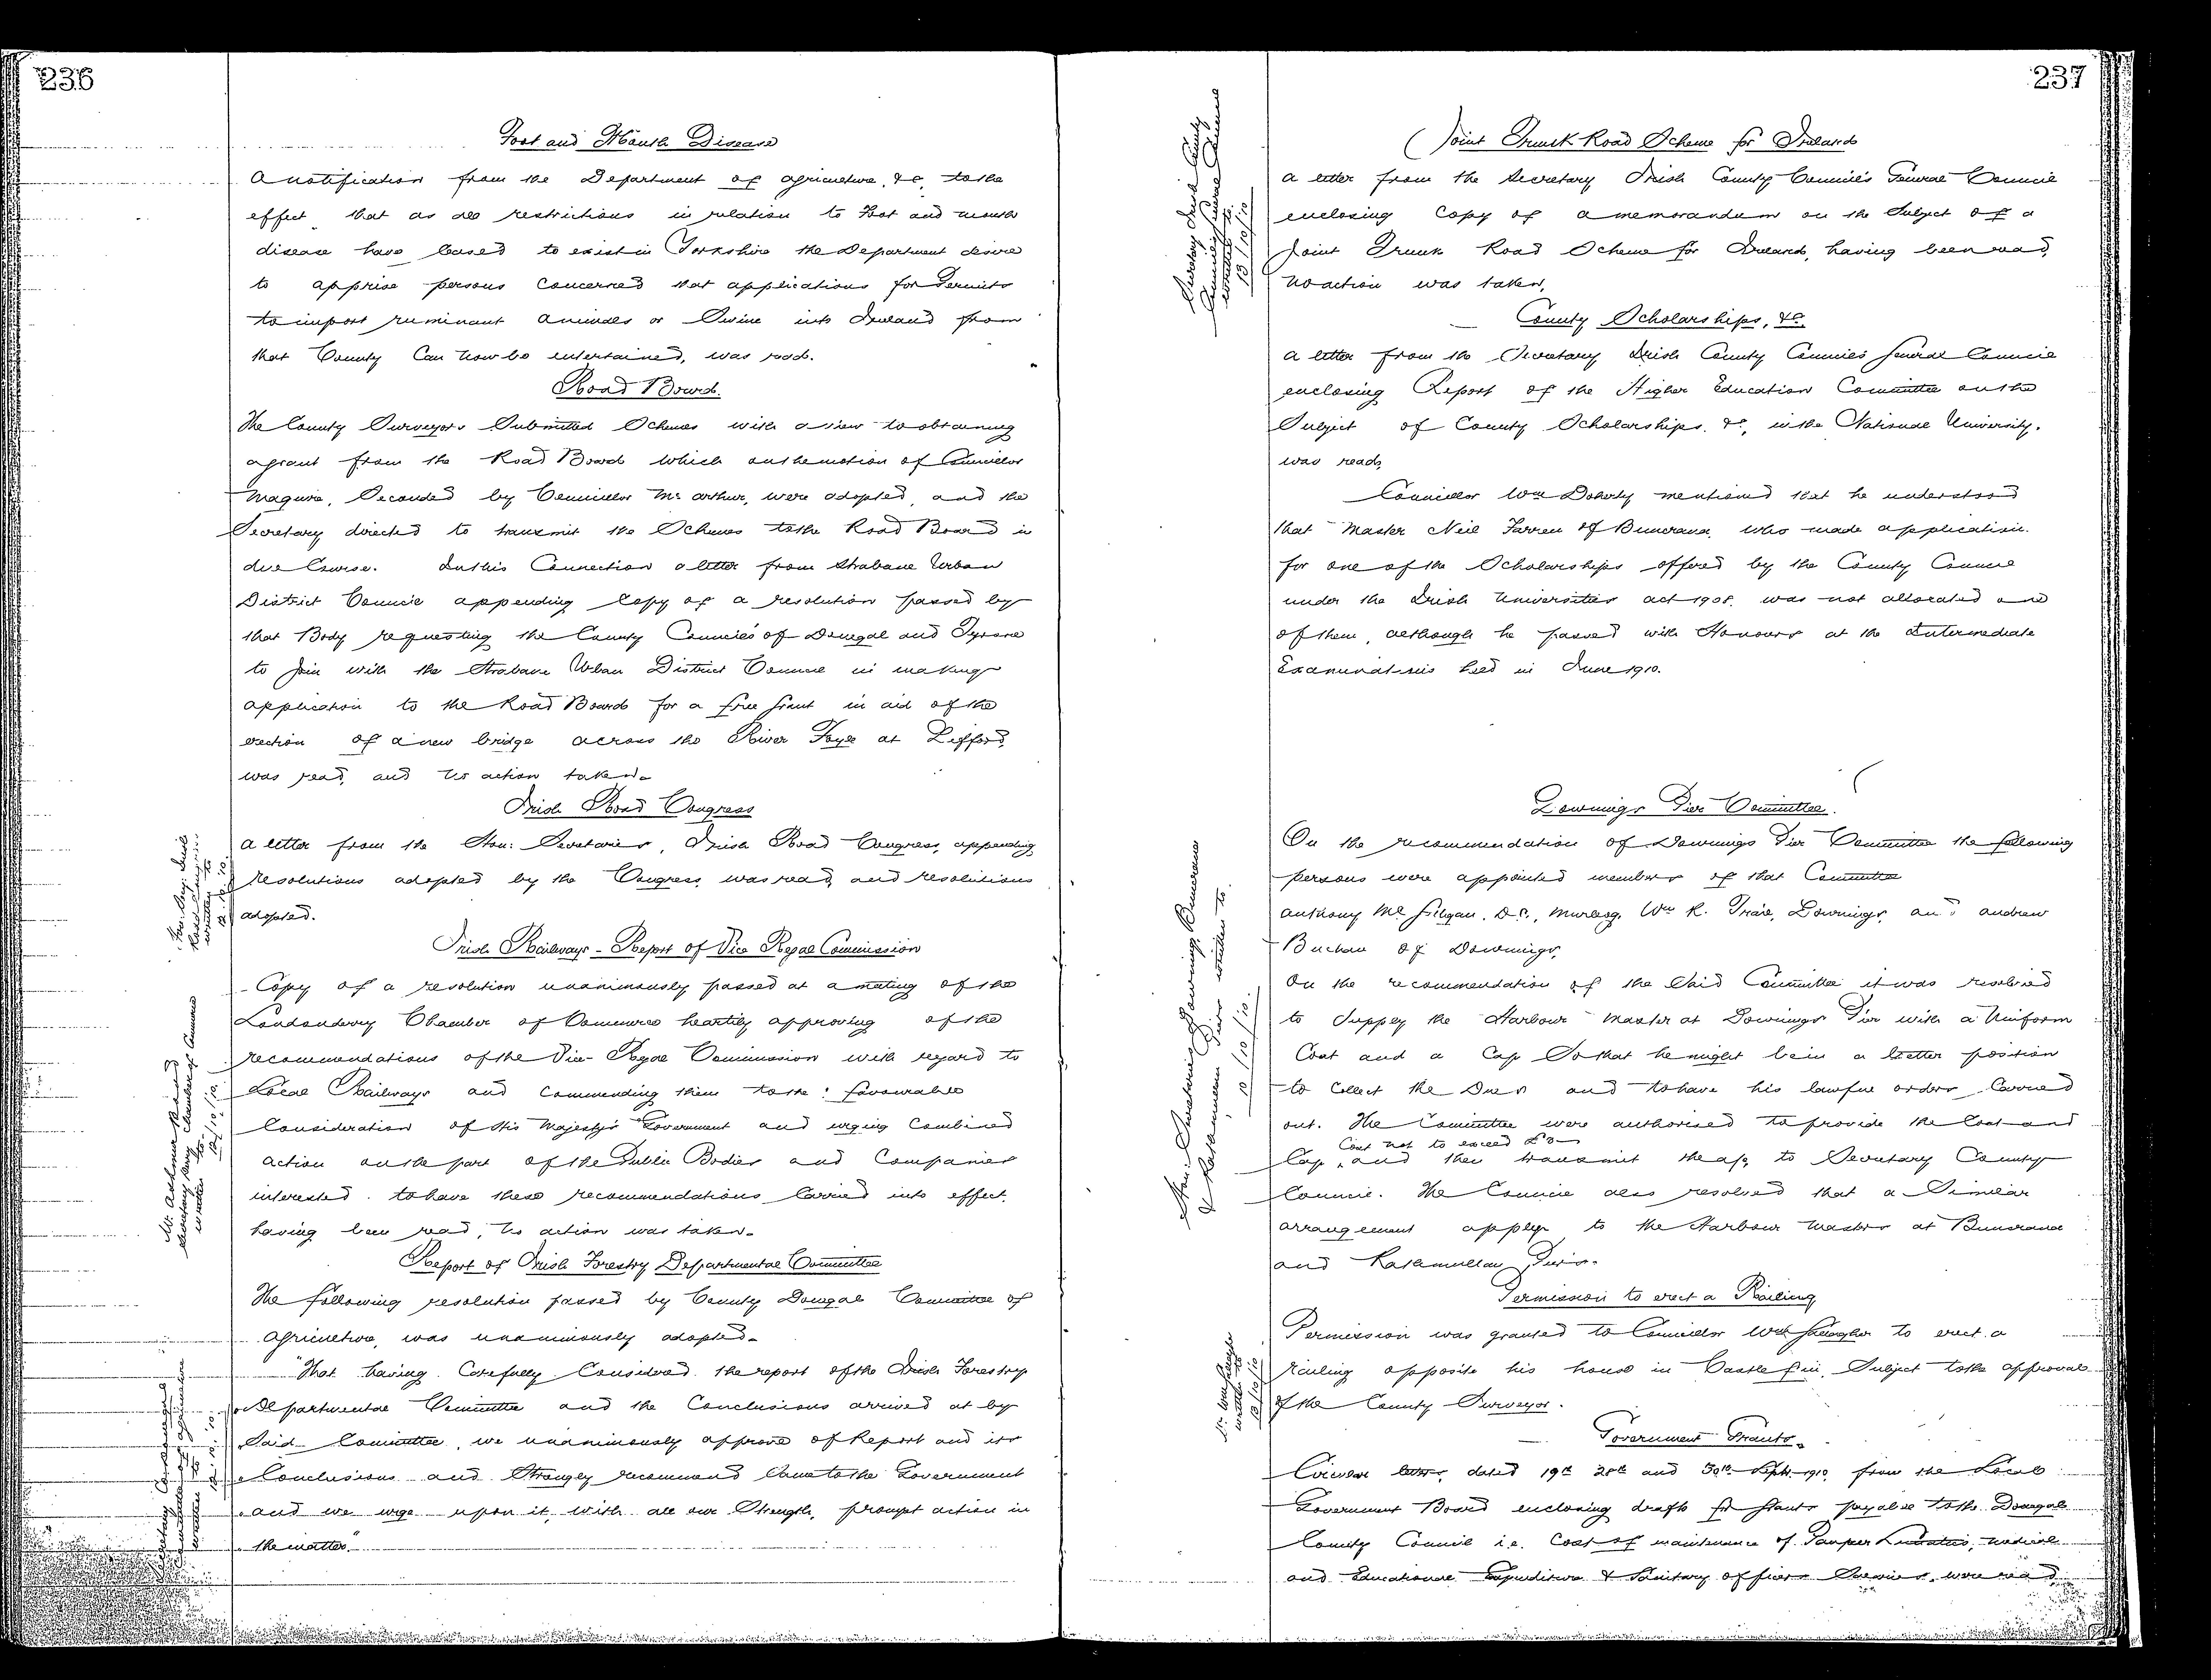 236
Foot and Mouth Disease
A notification from the Department of Agriculture, &c, to the
effect that as all restrictions in relation to Foot and mouth
disease have ceased to exist in Yorkshire the Department desire
to apprise persons concerned that applications for Permits
to import ruminant animals or Swine into Ireland from
that County can now be entertained, was read.
Road Board.
The County Surveyors Submitted Schemes with a view to obtaining
a grant from the Road Board which on the motion of Councillor
Maguire, Seconded by Councillor McArthur, were adopted, and the
Secretary directed to transmit the Schemes to the Road Board in
due Course. In this Connection a letter from Strabane Urban
District Council appending Copy of a resolution passed by
that Body requesting the County Councils of Donegal and Tyrone
to join with the Strabane Urban District Council in making
application to the Road Board for a free Grant in aid of the
erection of a new bridge across the River Foyle at Lifford,
was read, and no action taken.
Irish Road Congress
A letter from the Hon: Secretaries, Irish Road Congress, appending
resolutions adopted by the Congress, was read, and resolutions
adopted.
Irish Railways - Report of Vice Regal Commission
Copy of a resolution unanimously passed at a meeting of the
Londonderry Chamber of Commerce heartily approving of the
recommendations of the Vice-Regal Commission with regard to
Local Railways and commending them to the favourable
Consideration of His Majesty's Government and urging Combined
action on the part of the Public Bodies and Companies
interested to have these recommendations Carried into effect,
having been read, no action was taken.
Report of Irish Forestry Departmental Committee
The following resolution passed by County Donegal Committee of
Agriculture, was unanimously adopted.
"That having Carefully Considered the report of the Irish Forestry
Departmental Committee and the Conclusions arrived at by
"Said Committee, we unanimously approve of Report and its
"Conclusions and Strongly recommend same to the Government
"and we urge upon it, with all our Strength, prompt action in
"the matter."
237
Joint Trunk Road Scheme for Ireland
A letter from the Secretary Irish County Councils General Council
enclosing Copy of a memorandum on the Subject of a
Joint Trunk Road Scheme for Ireland, having been read,
no action was taken.
Secretary Irish County
Councils General Council
written to
13/10/10
County Scholarships, &c.
A letter from the Secretary Irish County Councils General Council
enclosing Report of the Higher Education Committee on the
Subject of County Scholarships, &c, in the National University,
was read.
Councillor Wm Doherty mentioned that he understood
that Master Neil Farren of Buncrana, who made application
for one of the Scholarships offered by the County Council
under the Irish Universities Act 1908, was not allocated one
of them, although he passed with Honours at the Intermediate
Examinations held in June 1910.
Downings Pier Committee.
On the recommendation of Downings Pier Committee the following
persons were appointed members of that Committee
Anthony McGilligan, D.C., Murlog, Wm R. , Downings, and Andrew
Buchan of Downings.
On the recommendation of the Said Committee it was resolved
to Supply the Harbour Master at Downings Pier with a Uniform
Coat and a Cap So that he might be in a better position
to Collect the Dues and to have his lawful orders Carried
out. The Committee were authorised to provide the Coat and
Cost not to exceed
Cap, and then transmit the a/c, to Secretary County
Council. The Council also resolved that a Similar
arrangement apply to the Harbour Masters at Buncrana
and Rathmullan Piers.
Permission to erect a Railing
Permission was granted to Councillor Wm Gallagher to erect a
railing opposite his house in Castlefin, Subject to the approval
of the County Surveyor.
Government Grants.
Circular letters, dated 19th 28th and 30th Septr. 1910, from the Local
Government Board enclosing drafts for Grants payable to the Donegal
County Council i.e. Cost of maintenance of Pauper Lunatics, medical
and Educational Expenditure & Sanitary officers Salaries, were read.